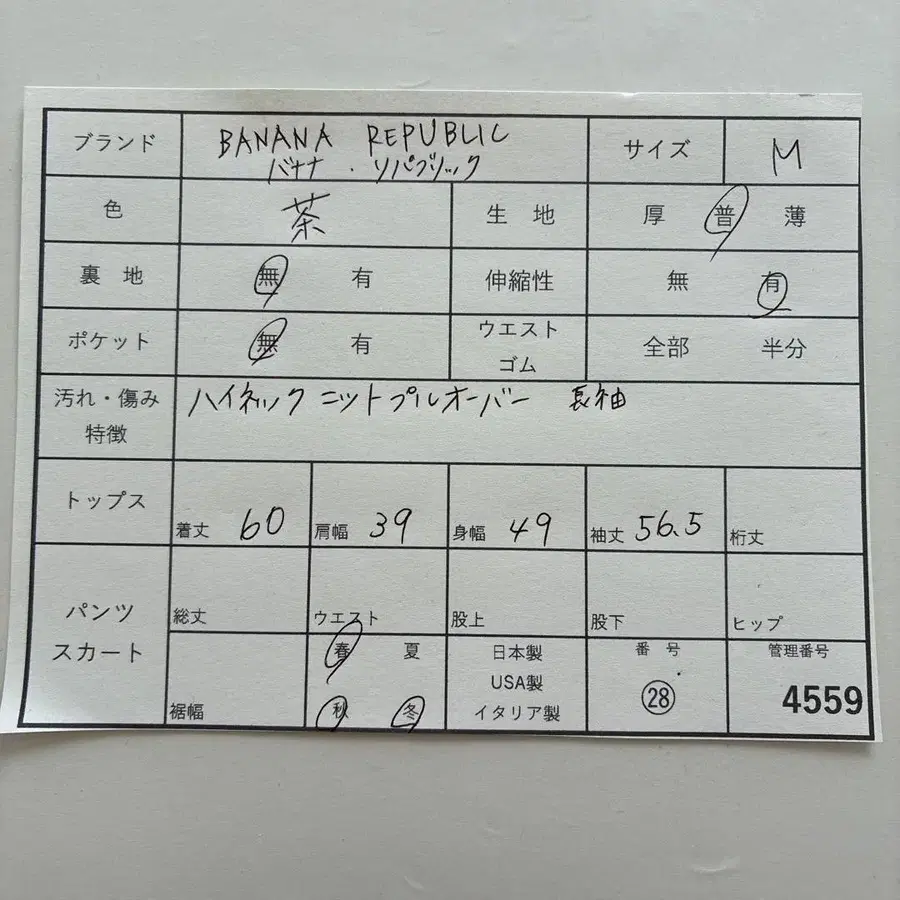 ブランド BANANA REPUBLIC サイズ M
バナナ・リパブリック
色 茶 生地 厚 普 薄
裏地 無 有 伸縮性 無 有
ポケット 無 有 ウエスト
ゴム 全部 半分
汚れ・傷み
特徴 ハイネックニットプルオーバー 長袖
トップス 着丈 60 肩幅 39 身幅 49 袖丈 56.5 裄丈
パンツ
スカート 総丈 ウエスト 股上 股下 ヒップ
裾幅 春 夏
秋 冬
日本製
USA製
イタリア製
番号
28
管理番号
4559